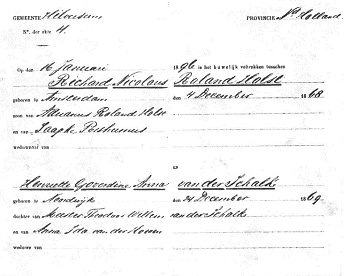 GEMEENTE Hilversum PROVINCIE Nd Holland
No. der akte 4.
Op den 16 Januari 1896 is het huwelijk voltrokken tusschen
Richard Nicolaus Roland Holst
geboren te Amsterdam den 4 December 1868
zoon van Adrianus Roland Holst
en van Saapke Posthumus
weduwnaar van
en
Henriette Goverdine Anna van der Schalk
geboren te Noordwijk den 24 December 1869
dochter van Meester Theodoor Willem van der Schalk
en van Anna Ida van der Hoeven
weduwe van